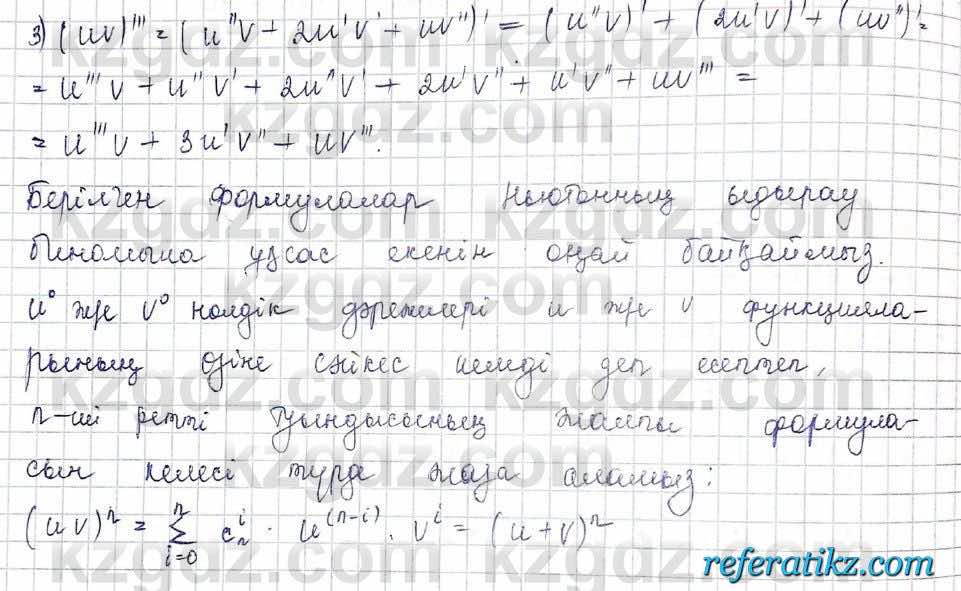 3) (uv)''' = (u''v + 2u'v' + uv'')' = (u''v)' + (2u'v')' + (uv'')' =
= u'''v + u''v' + 2u''v' + 2u'v'' + u'v'' + uv''' =
= u'''v + 3u'v'' + uv'''.
Берілген формулалар Ньютонның ыдырау
биномына ұқсас екенін оңай байқаймыз.
u° және v° нолдік дәрежелері u және v функцияла-
рының өзіне сәйкес келеді деп есептеп,
n-ші ретті туындысының жалпы формула-
сын келесі түрде жаза аламыз:
(uv)ⁿ = Σ C u⁽ⁿ⁻ⁱ⁾ · vⁱ = (u+v)ⁿ
kzgdz.com
referatikz.com